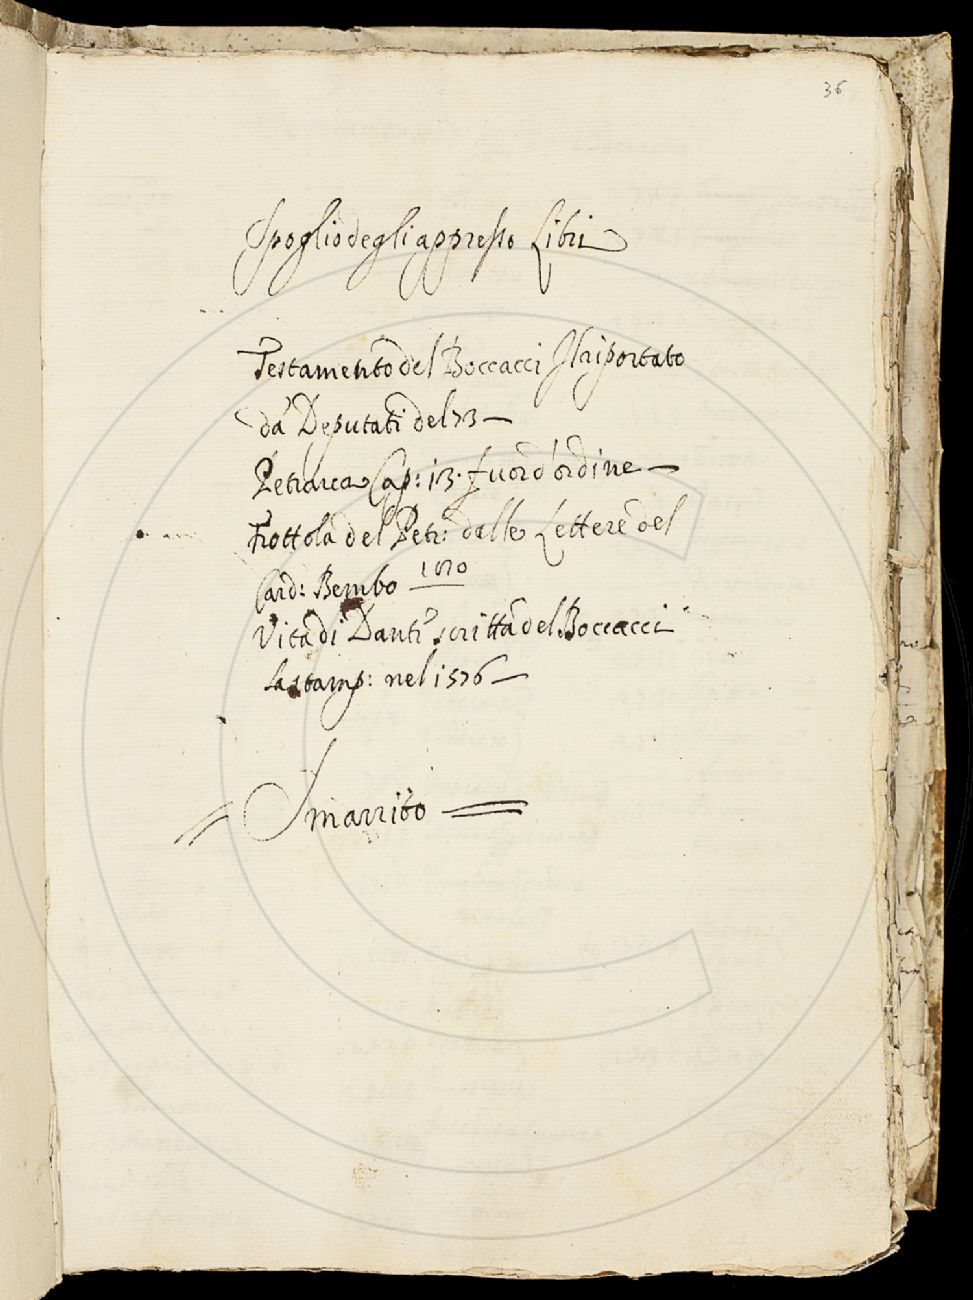 36
Spoglio degli appresso Libri
Testamento del Boccacci Il riportato
da' Deputati del 73
Petrarca Cap: 13. fuor d'ordine
Frottola del Petr: dalle Lettere del
Card: Bembo
Vita di Dante scritta del Boccacci
la stamp: nel 1576
Smarrito